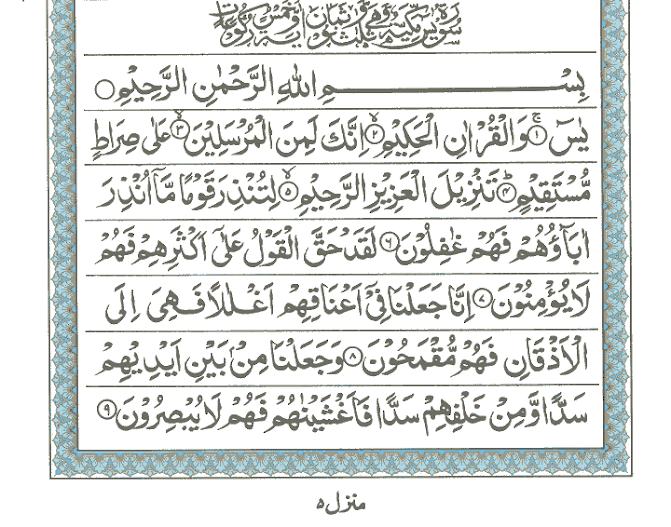 سورة يس مكية وهي ثلث وثمانون اية وخمس ركوعات
بِسْمِ اللهِ الرَّحْمٰنِ الرَّحِيْمِ
يٰسٓ ۚ﴿۱﴾ وَالْقُرْاٰنِ الْحَكِيْمِ ۙ﴿۲﴾ اِنَّكَ لَمِنَ الْمُرْسَلِيْنَ ۙ﴿۳﴾ عَلٰى صِرَاطٍ
مُّسْتَقِيْمٍ ؕ﴿۴﴾ تَنْزِيْلَ الْعَزِيْزِ الرَّحِيْمِ ۙ﴿۵﴾ لِتُنْذِرَ قَوْمًا مَّاۤ اُنْذِرَ
اٰبَآؤُهُمْ فَهُمْ غٰفِلُوْنَ ﴿۶﴾ لَقَدْ حَقَّ الْقَوْلُ عَلٰۤى اَكْثَرِهِمْ فَهُمْ
لَا يُؤْمِنُوْنَ ﴿۷﴾ اِنَّا جَعَلْنَا فِيْۤ اَعْنَاقِهِمْ اَغْلٰلًا فَهِيَ اِلَى
الْاَذْقَانِ فَهُمْ مُّقْمَحُوْنَ ﴿۸﴾ وَجَعَلْنَا مِنْۢ بَيْنِ اَيْدِيْهِمْ
سَدًّا وَّمِنْ خَلْفِهِمْ سَدًّا فَاَغْشَيْنٰهُمْ فَهُمْ لَا يُبْصِرُوْنَ ﴿۹﴾
منزل ٥